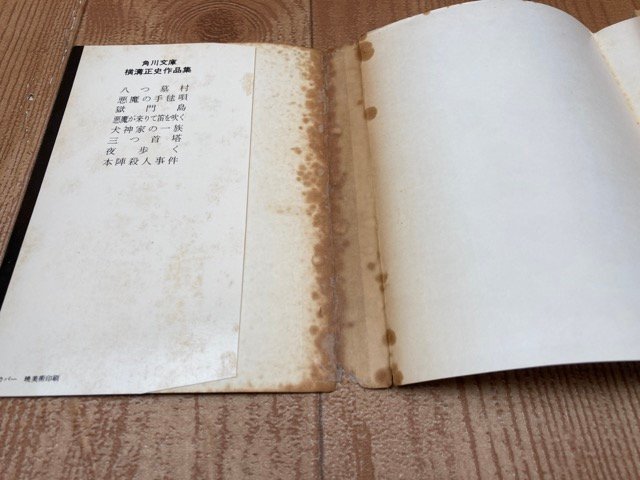 角川文庫
横溝正史作品集
八つ墓村
悪魔の手毬唄
獄門島
悪魔が来りて笛を吹く
犬神家の一族
三つ首塔
夜歩く
本陣殺人事件
カバー 暁美術印刷